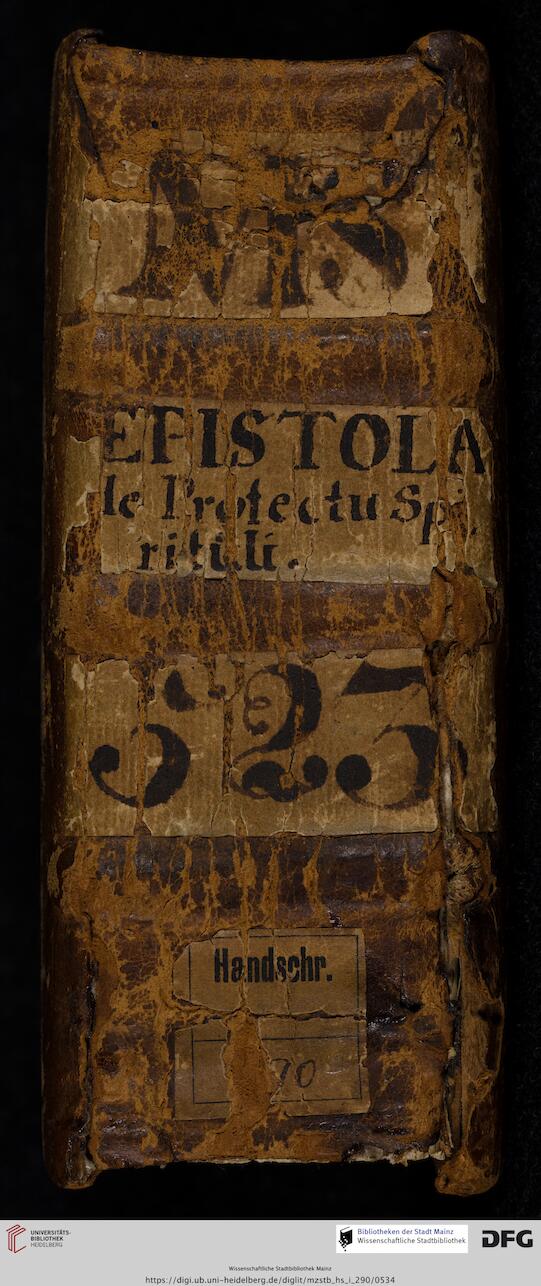 EPISTOLA
de Profectu Spi,
ritali.
523
Handschr.
90
UNIVERSITÄTS-
BIBLIOTHEK
HEIDELBERG
Bibliotheken der Stadt Mainz
Wissenschaftliche Stadtbibliothek
DFG
Wissenschaftliche Stadtbibliothek Mainz
https://digi.ub.uni-heidelberg.de/diglit/mzstb_hs_i_290/0534